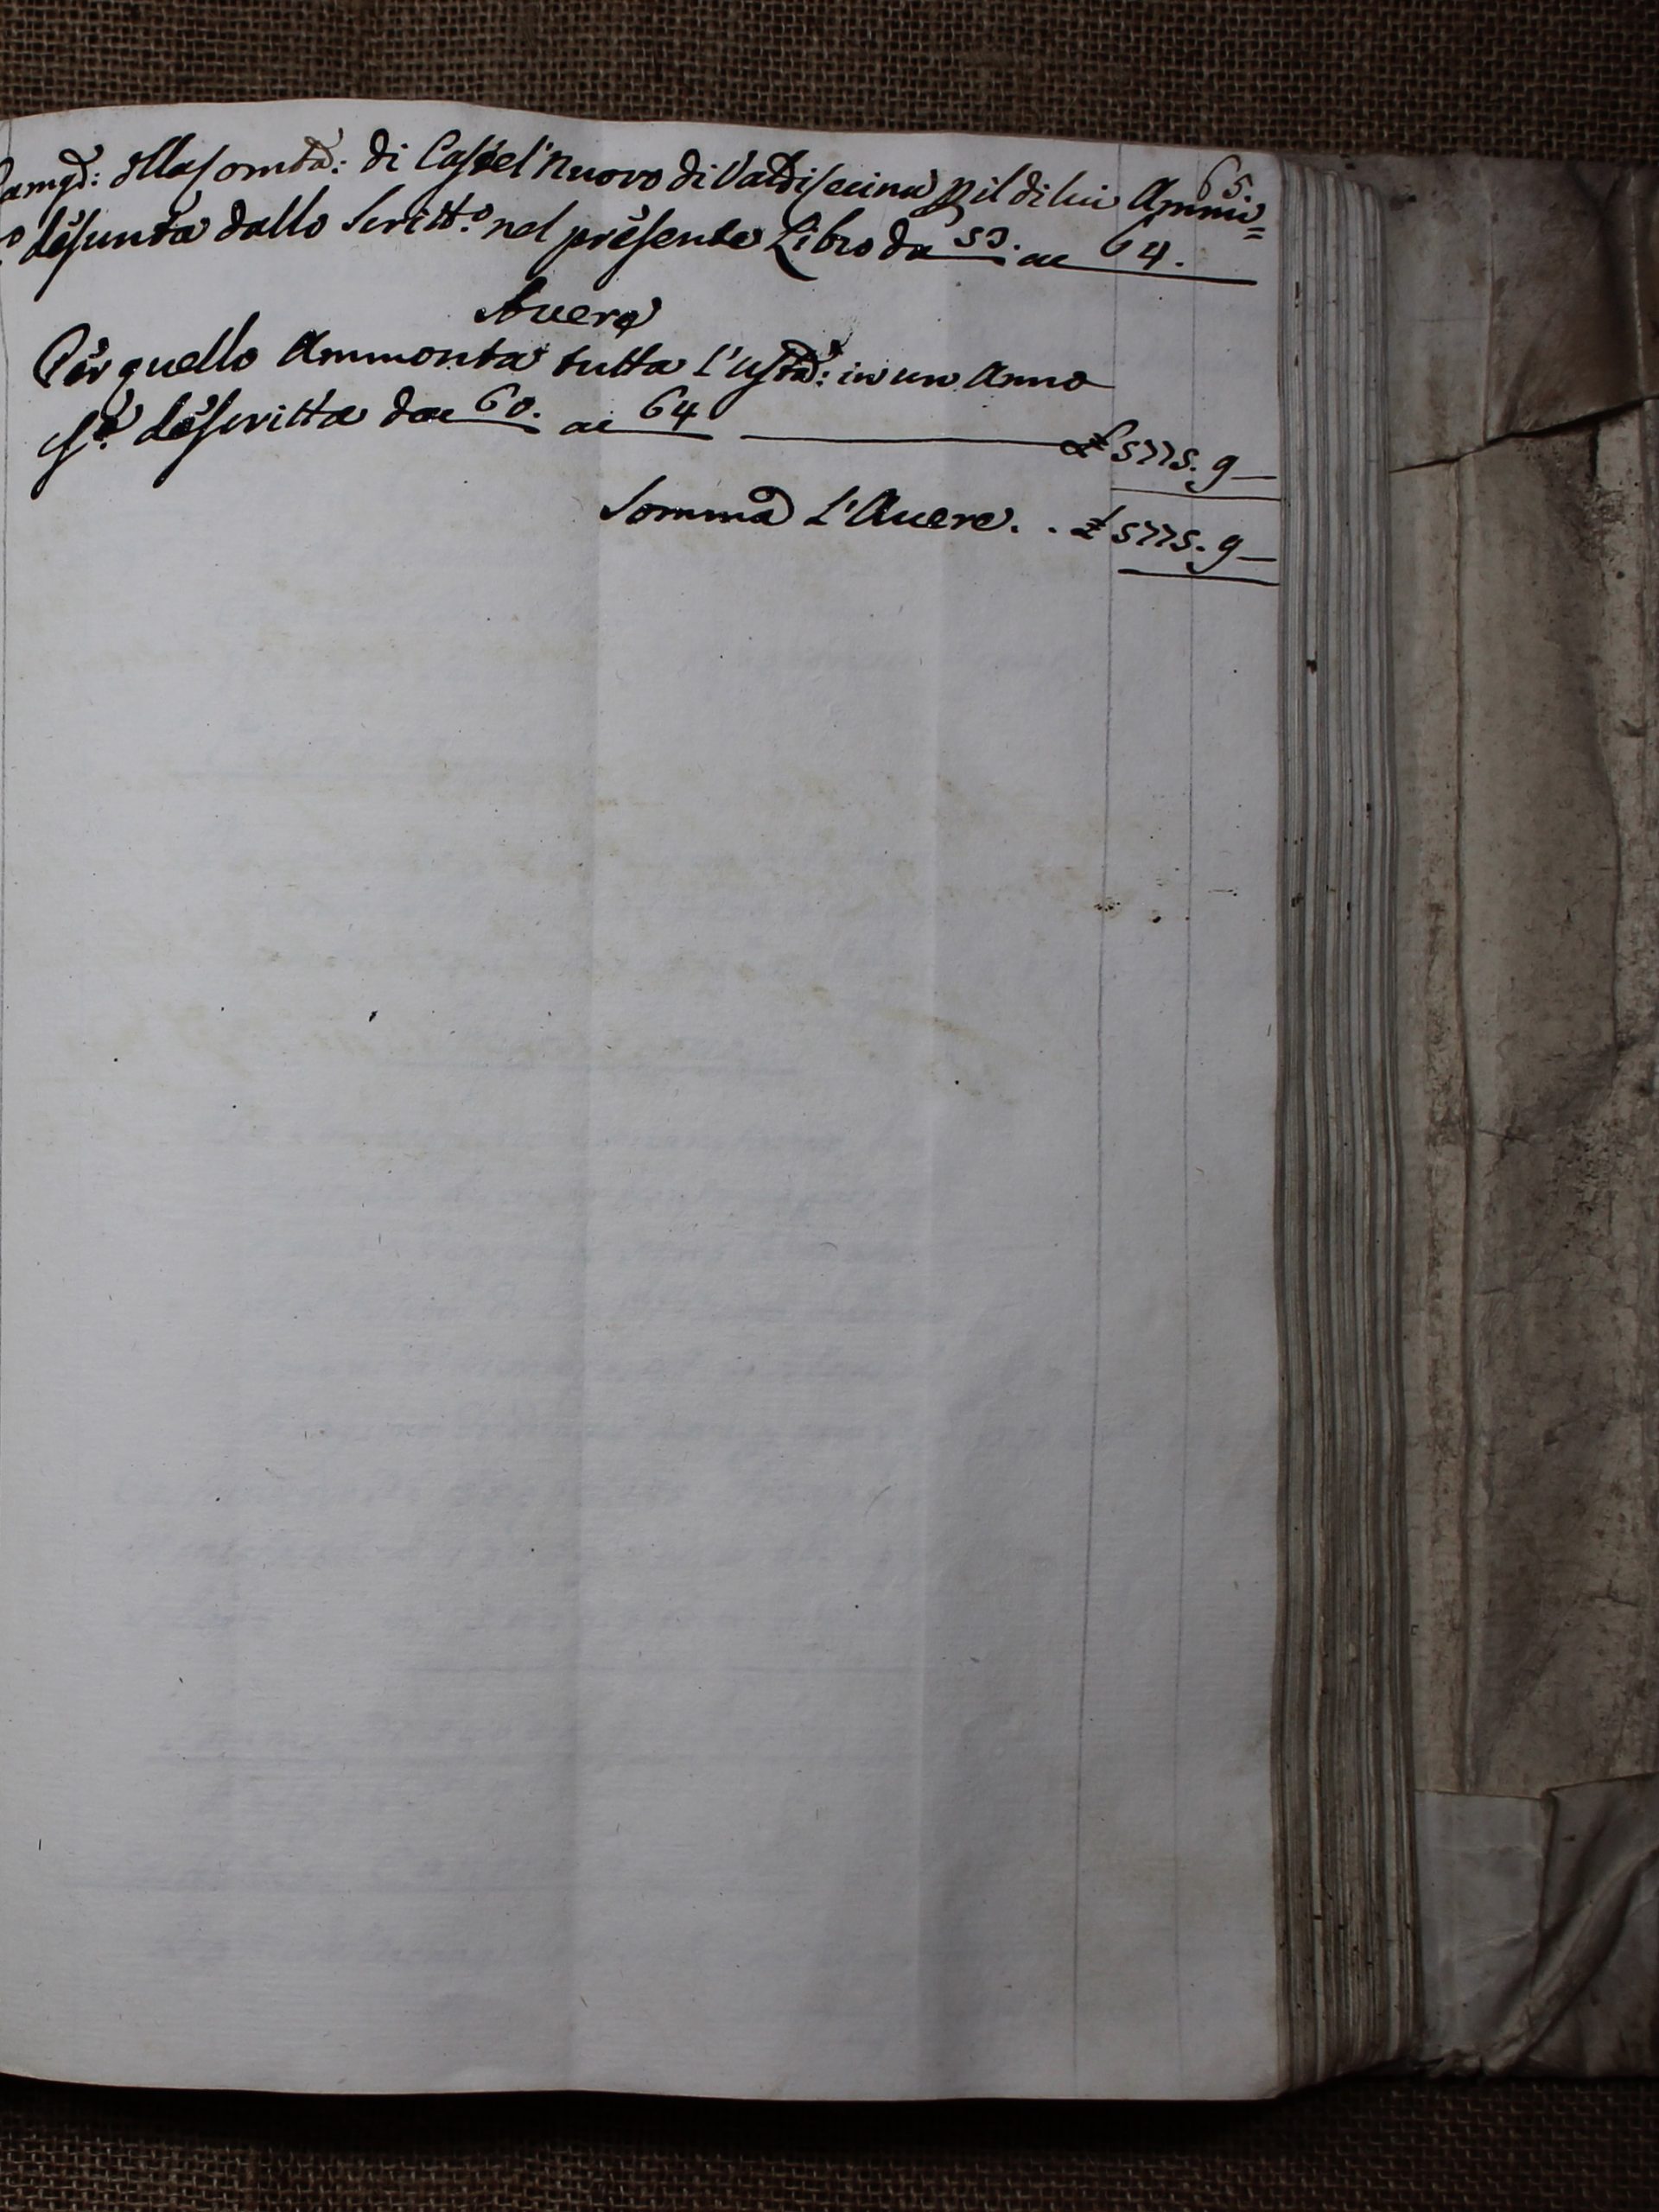 65
Camgo: della Comtà: di Castel'Nuovo di Valdisecina p il di lui Ammi=
desunta dallo Scritt.o nel presente Libro da 53. a 64.
Avere
Per quello Ammonta tutta l'Usta: in un Anno
descritta da 60. a 64 £ 5775. 9 —
Somma L'Avere . . £ 5775. 9 —